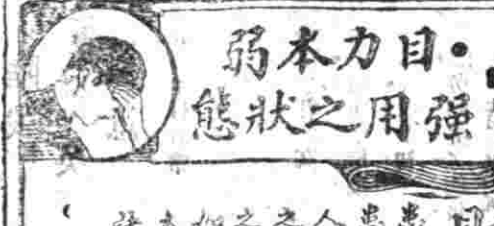 目力本弱
强用之狀態